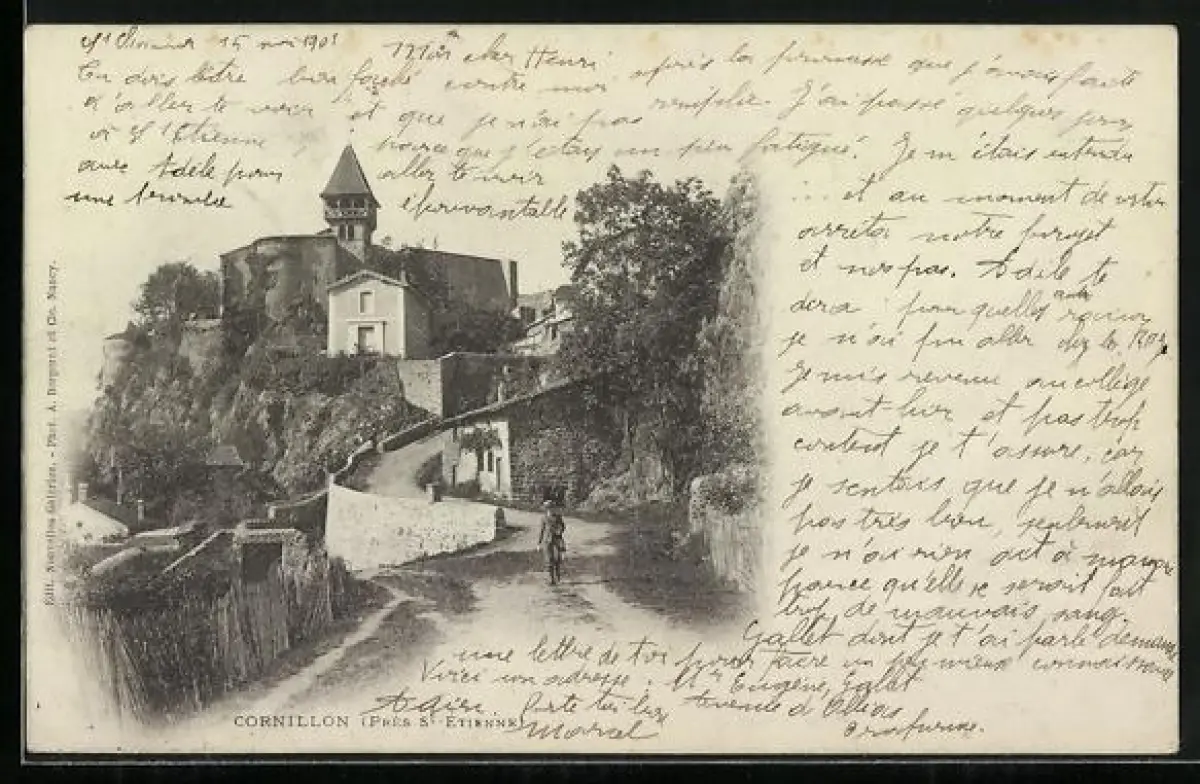 15 mai 1903
Mon cher Henri
Tu dois être bien fâché contre moi après la promesse que j'avais faite
d'aller te voir et que je n'ai pas remplie. J'ai passé quelques jours
à St Etienne parce que j'étais un peu fatigué. Je m'étais entendu
avec Adèle pour aller te voir
une épouvantable
... et au moment de
arrêta notre projet
et pas. Adèle te
dira pour quelles raisons
je n'ai pu aller chez les
Je suis revenu au collège
avant-hier et pas trop
content je t'assure, car
je sentais que je n'allais
pas très bien, seulement
je n'ai rien dit à
parce qu'elle se serait fait
trop de mauvais sang.
Gallet dont je t'ai parlé demande
une lettre de toi pour faire un peu mieux connaissance
Voici son adresse. Mr Eugène Galet
Adieu. Porte toi bien
Marcel
CORNILLON (PRÈS ST-ETIENNE)
Edit. Nouvelles Galeries. - Phot. A. Bergeret et Cie, Nancy.